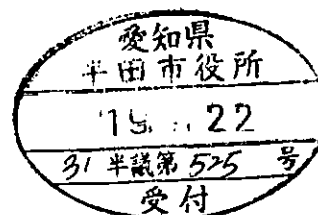 愛知県
半田市役所
22
31 半議第 525 号
受付